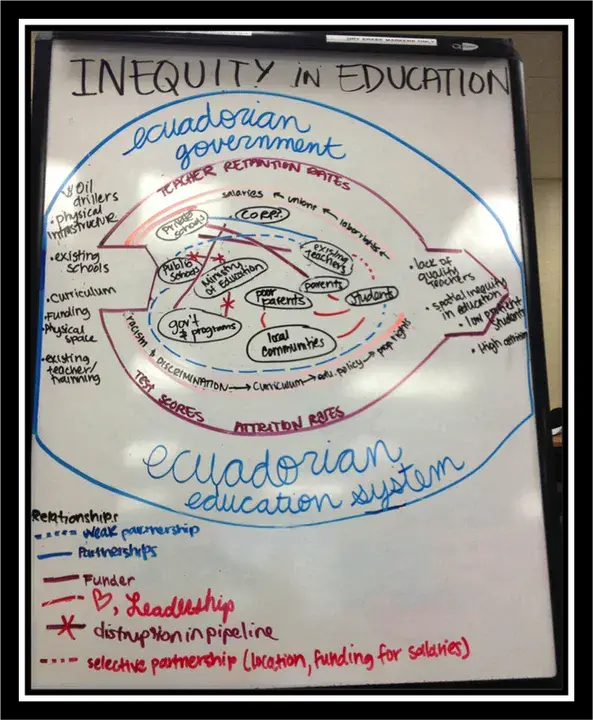 DRY ERASE MARKERS ONLY
INEQUITY IN EDUCATION
ecuadorian
government
TEACHER RETENTION RATES
salaries ← unions ←
Oil
drillers
• physical
infrastructure
• existing
schools
• Curriculum
• Funding
• Physical
space
• existing
teacher/
trainning
Private
schools
CORPS.
existing
teachers
Public
schools
Ministry
of Education
poor
parents
parents
students
gov't
programs
local
communities
• lack of
quality
teachers
• spatial inequity
in education
• low
students
• High
racism
& DISCRIMINATION → Curriculum → edu. policy → prop rights
TEST SCORES
ATTRITION RATES
ecuadorian
education system
Relationships
weak partnership
Partnerships
Funder
♡, Leadership
distruption in pipeline
selective partnership (location, funding for salaries)